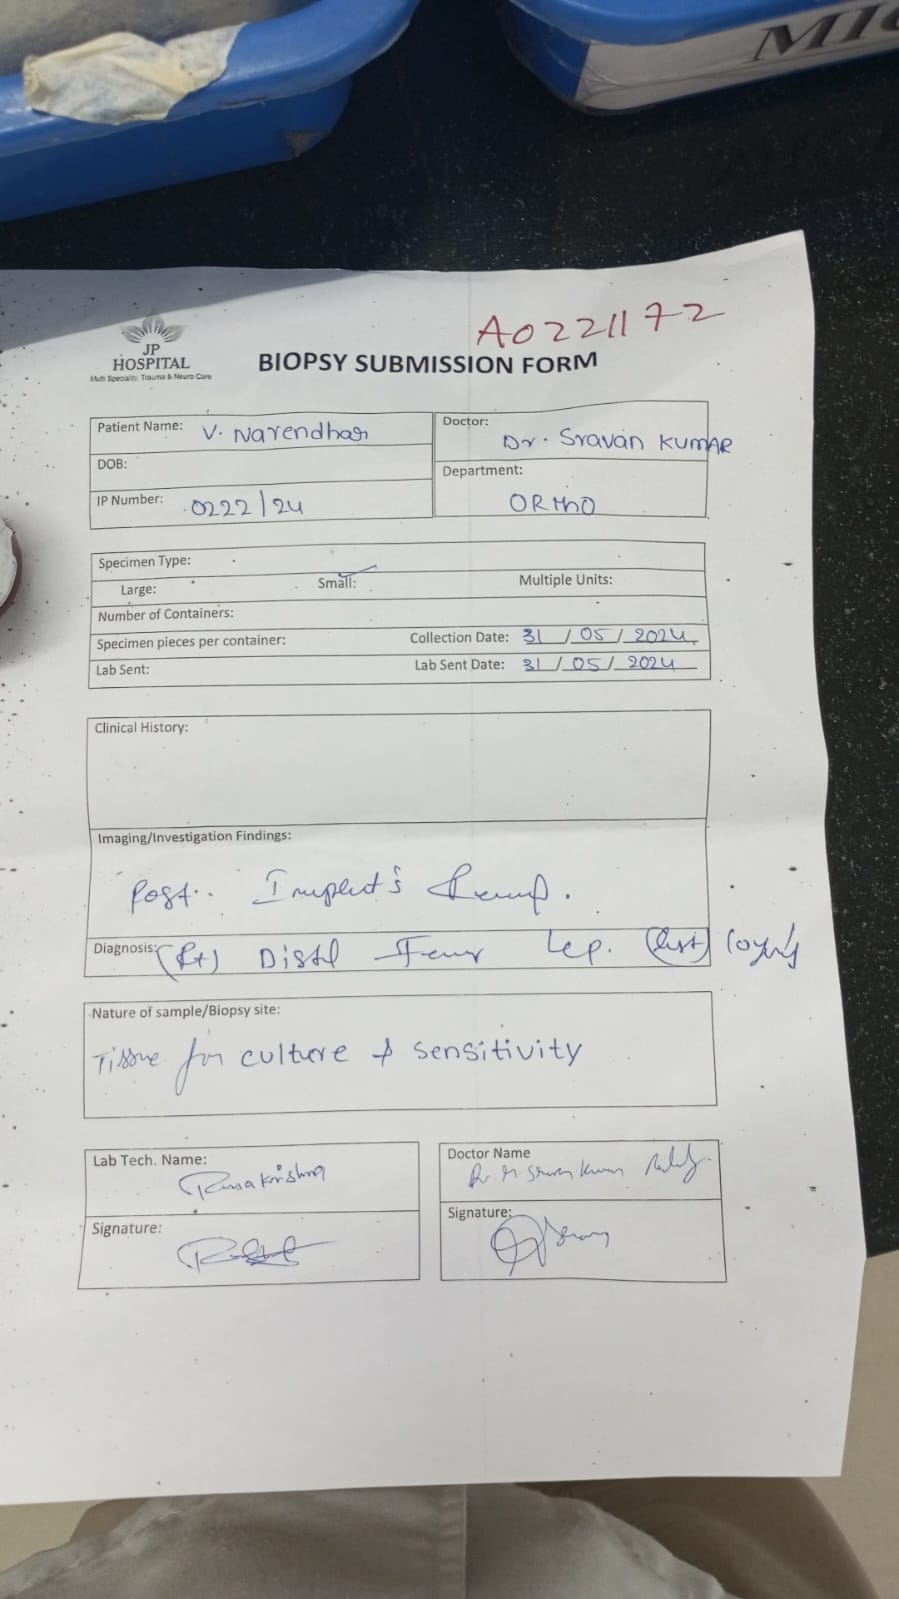 MIC
A0221172
JP
HOSPITAL
Multi Speciality Trauma & Neuro Care
BIOPSY SUBMISSION FORM
Patient Name: V. Narendhar
Doctor: Dr. Sravan KUMAR
DOB:
Department: ORTHO
IP Number: 0222/24
Specimen Type:
Large: Small: Multiple Units:
Number of Containers:
Specimen pieces per container: Collection Date: 31/05/2024
Lab Sent: Lab Sent Date: 31/05/2024
Clinical History:
Imaging/Investigation Findings:
Post..
Diagnosis: (Rt) Distal Femur
Nature of sample/Biopsy site:
Tissue for culture & sensitivity
Lab Tech. Name: Ramakrishna
Doctor Name
Signature:
Signature: